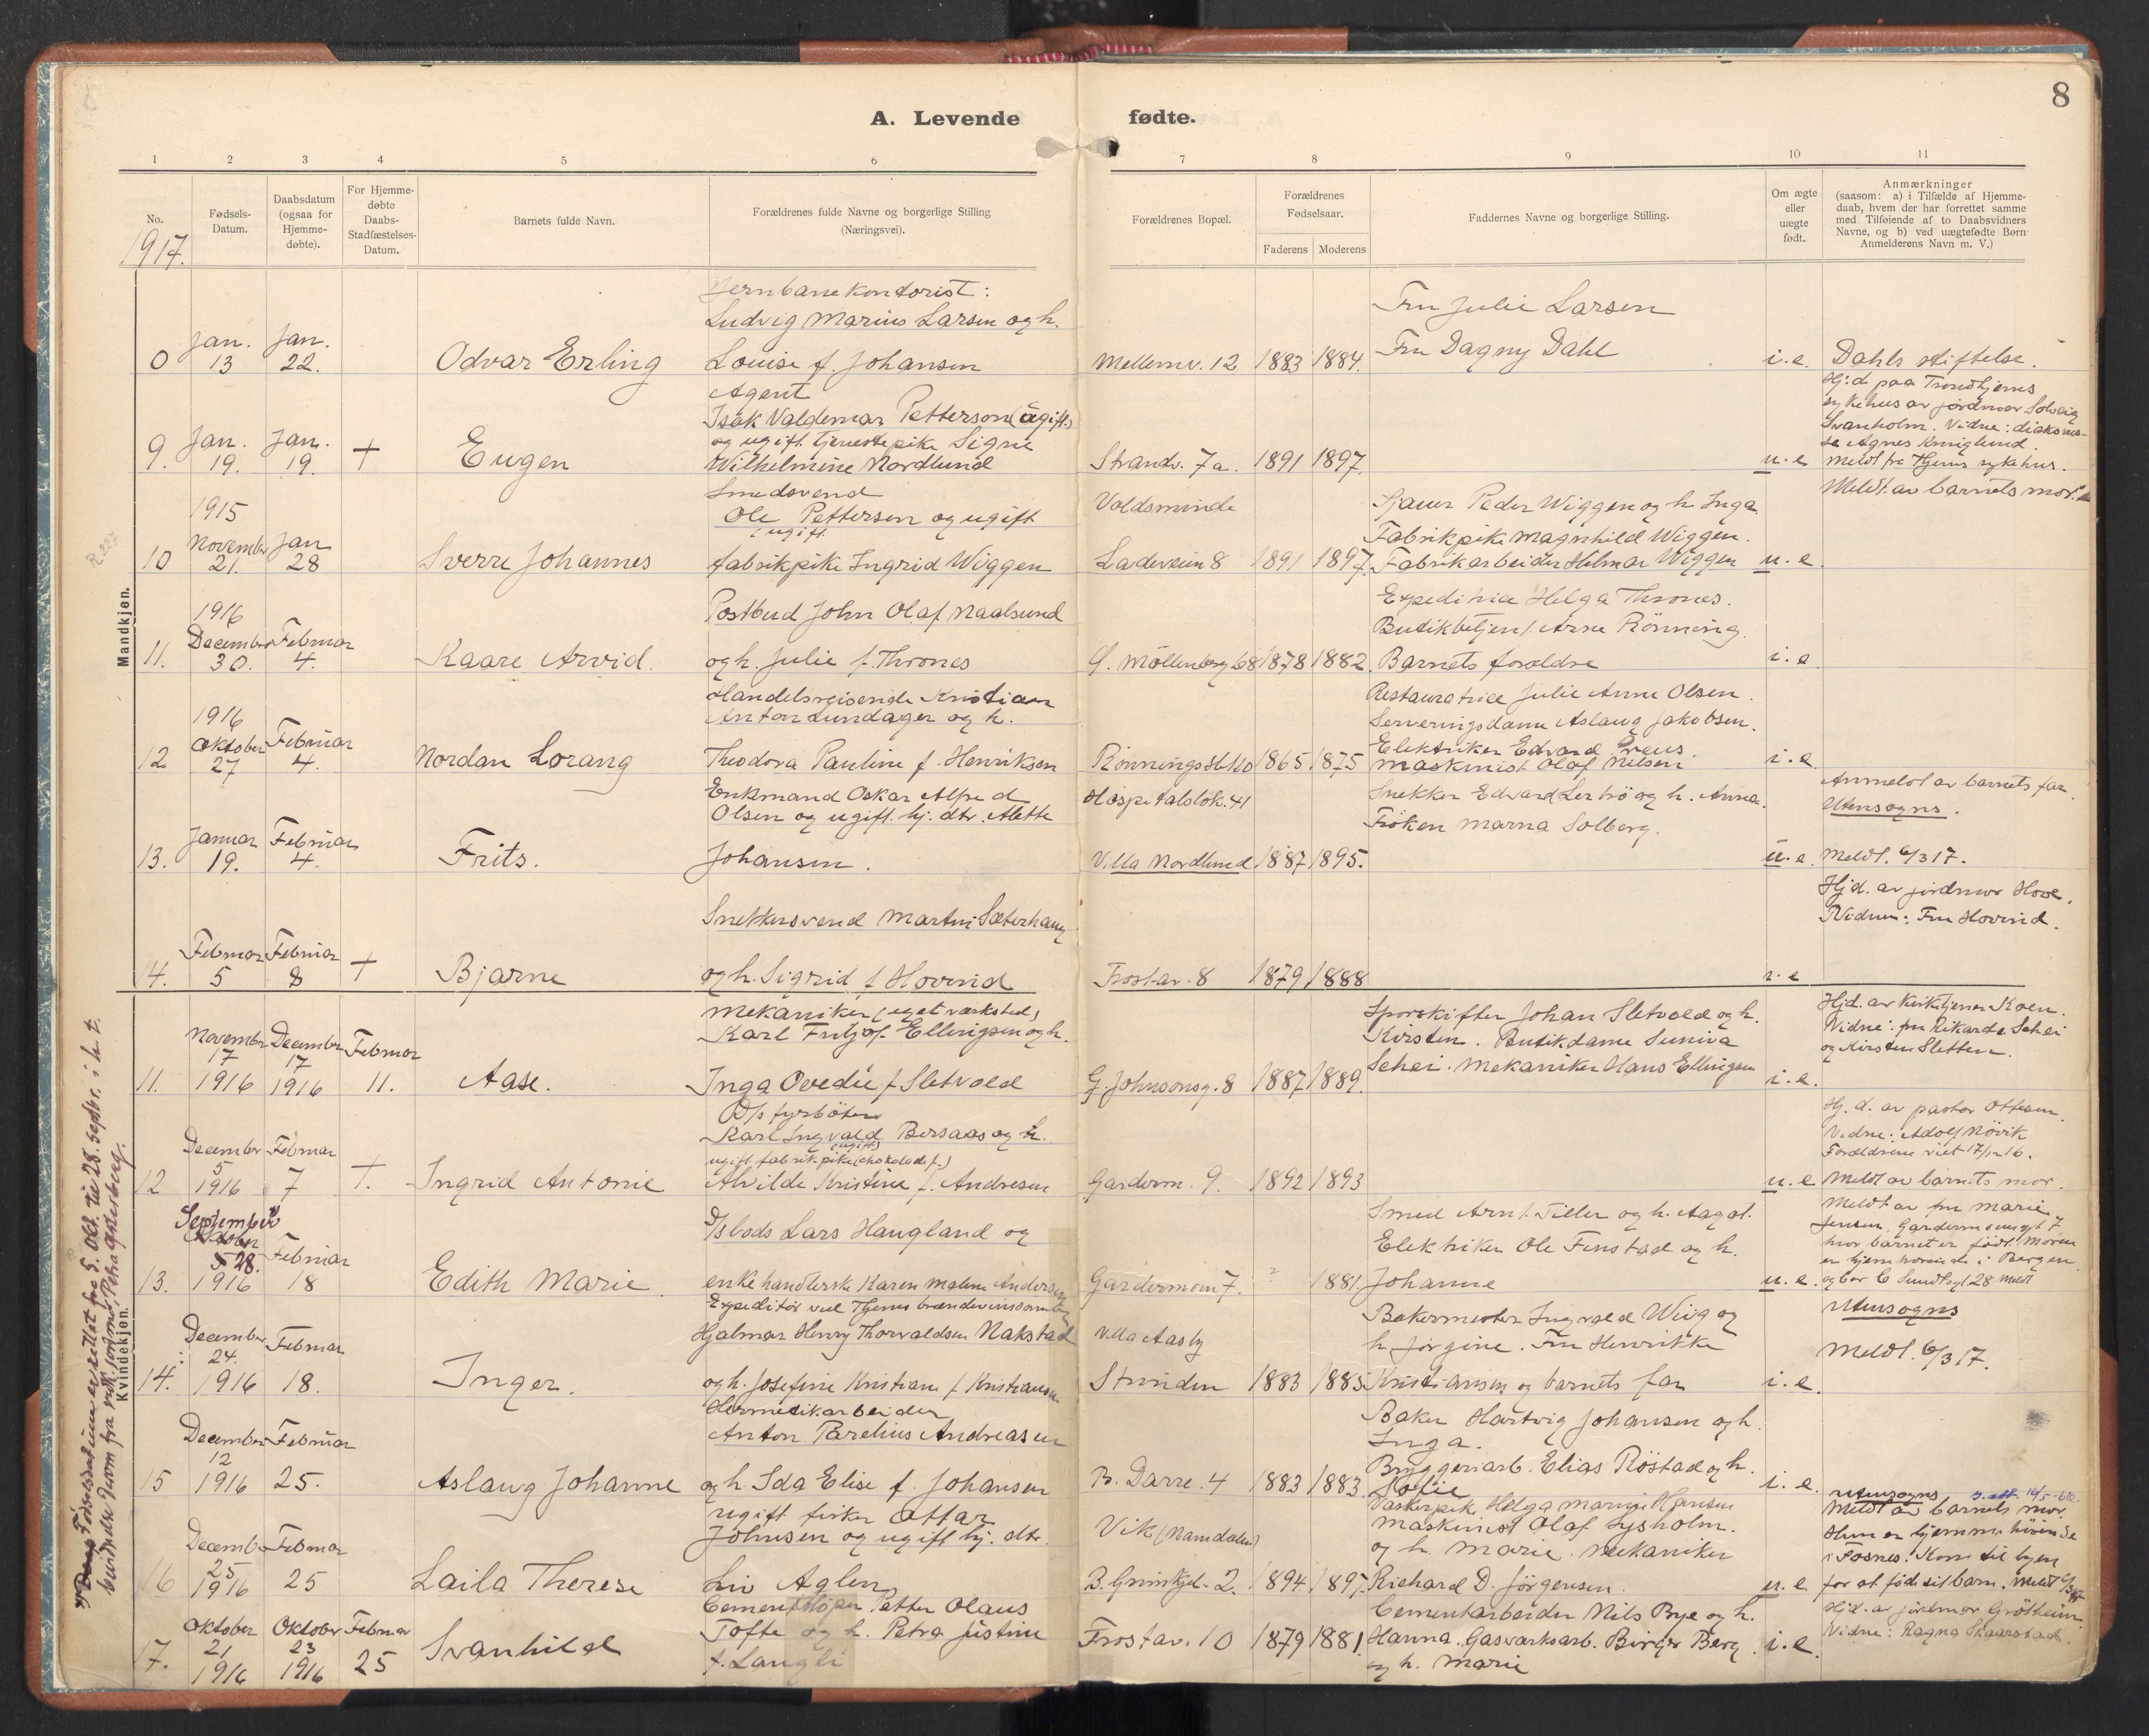 8
A. Levende fødte.
1 2 3 4 5 6 7 8 9 10 11
No.
1917.
Fødsels-
Datum.
Daabsdatum
(ogsaa for
Hjemme-
døbte).
For Hjemme-
døbte
Daabs-
Stadfæstelses-
Datum.
Barnets fulde Navn.
Forældrenes fulde Navne og borgerlige Stilling
(Næringsvei).
Forældrenes Bopæl.
Forældrenes
Fødselsaar.
Faderens Moderens
Faddernes Navne og borgerlige Stilling.
Om ægte
eller
uægte
født.
Anmærkninger
(saasom: a) i Tilfælde af Hjemme-
daab, hvem der har forrettet samme
med Tilføiende af to Daabsvidners
Navne, og b) ved uægtefødte Børn
Anmelderens Navn m. V.)
Mandkjøn.
0 Jan. 13 Jan. 22. Odvar Erling
Jernbanekontorist:
Ludvig Marius Larsen og h.
Louise f. Johansen
Mellemv. 12 1883 1884.
Fru Julie Larsen
Fru Dagny Dahl
i.e. Dahls stiftelse.
9. Jan. 19. Jan. 19. + Eugen
Agent
Isak Valdemar Petterson (ugift)
og ugift tjenestepike Signe
Wilhelmine Nordlund
Strandv. 7a. 1891 1897.
u.e
Hj.d paa Trondhjems
sykehus av jordmor Solveig
Svanholm. Vidne: diakonis-
se Agnes
Meldt fra Thjems sykehus.
10 1915 November 21. Jan 28 Sverre Johannes
Smedsvend
Ole Pettersen og ugift
(ugift)
fabrikpike Ingrid Wiggen
Voldsminde
Ladeveien 8 1891 1897.
Sjauer Peder Wiggen og h Inga
Fabrikpike Magnhild Wiggen.
Fabrikarbeider Helmar Wiggen
u.e.
Meldt av barnets mor.
11. 1916 December 30. Februar 4. Kaare Arvid.
Postbud John Olaf Naalsund
og h. Julie f. Thrones
G. Möllenberg 68 1878 1882.
Expeditrice Helga Thrones.
Butikbetjent Arne Rönning.
Barnets foreldre
i.e
12 1916 Oktober 27 Februar 4. Nordan Lorang
Handelsreisende Kristian
Anton Lundager og h.
Theodora Pauline f. Henriksen
1865 1875
Restauratrice Julie Anne Olsen.
Serveringsdame Aslaug Jakobsen.
Elektriker Edvard
Maskinist Olaf Nilsen
i.e
13. Januar 19. Februar 4. Frits.
Enkmand Oskar Alfred
Olsen og ugift hj. dtr. Alette
Johansen.
Hospitalslök. 41
Villa Nordlund 1887 1895.
Snekker Edvard Lerbrö og h. Anna.
Fröken Marna Solberg.
u.e.
Anmeldt av barnets far.
Utensogns.
Meldt. 6/3 17.
14. Februar 5 Februar 8 + Bjarne
Snekkersvend Martin Sæterhaug
og h. Sigrid f Hovind
Frostav. 8 1879 1888
i.e
Hjd. av jordmor Hove.
Vidne: Fru Hovind.
Kvindekjøn.
11. November 17 1916 December 17 1916 Februar 11. Aase.
Mekaniker (eget værksted)
Karl Fritjof Ellingsen og h.
Inga Ovedie f Sletvold
G. Johnsonsg. 8 1887 1889.
Sporskifter Johan Sletvold og h.
Kirsten. Butikdame Suniva
Schei. Mekaniker Hans Ellingsen
i.e.
Hjd. av Kirketjener Koen.
Vidne: fru Rikarde Schei
og Kirsten Sletten.
12 December 5 1916 Februar 7 +. Ingrid Antonie
D/s fyrböter
Karl Ingvald Bersaas og h.
(ugift)
ugift fabrikpike (chokoladef.)
Alvilde Kristine f. Andresen
Garderm. 9. 1892 1893
u.e
Hj. d. av pastor Ottesen.
Vidne: Adolf Növik
Forældrene viet 17/12 16.
Meldt av barnets mor.
13. September Oktober 5 28. 1916 Februar 18 Edith Marie.
Islods Lars Haugland og
enke handlerske Karen Malene Andersen
Gardermoen 7. ? 1881.
Smed Arnt Tiller og h. Aagot.
Elektriker Ole Finstad og h.
Johanne
u.e.
Meldt av fru Marie
Jensen, Gardermoensgt 7
hvor barnet er födt. Moren
er hjemhörende i Bergen
og bor C. Sundtsgt 28 Meldt
14. December 24. 1916 Februar 18. Inger.
Expeditör ved Thjems brændevinssamlag
Hjalmar Henry Thorvaldsen Nakstad
og h. Josefine Kristiane f Kristiansen
Villa Aasly
Strinden 1883 1885
Bakermester Ingvald Wiig og
h Jörgine. Fru Henrikke
Kristiansen og barnets far
i.e.
Utensogns
Meldt. 6/3 17.
15 December 12 1916 Februar 25. Aslaug Johanne
Hermetikarbeider
Anton Parelius Andreasen
og h Ida Elise f. Johansen
B. Darre. 4 1883 1883.
Baker Hartvig Johansen og h.
Inga.
Bryggeriarb. Elias Röstad og h.
Sofie
i.e.
16 December 25 1916 Februar 25 Laila Therese
ugift fisker Ottar
Johnsen og ugift hj. dtr.
Liv Aglen
Vik (Namdalen)
B. Grinikjel. 2. 1894 1897.
Vaskerpike Helga Marie Hansen
Maskinist Olaf Lysholm.
og h. Marie. Mekaniker
Richard D. Jörgensen.
u.e.
Utensogns
Meldt av barnets mor.
Hun er hjemmehörende
i Fosnes. Kom til byen
for at föde sit barn. Meldt
17. Oktober 21 1916 Oktober 23 1916 Februar 25 Svanhild
Cementstöper Petter Olaus
Tofte og h. Petra Justine
f. Langli
Frostav. 10 1879 1881.
Cementarbeider Nils Bye og h.
Hanna. Gasværksarb. Birger Berg
og h. Marie
i.e.
Hjd. av jordmor Grötheim
Vidne: Ragna Skaarstad.
Födselsdatum er rettet fra 5. Okt. til 28. septbr. i h. t.